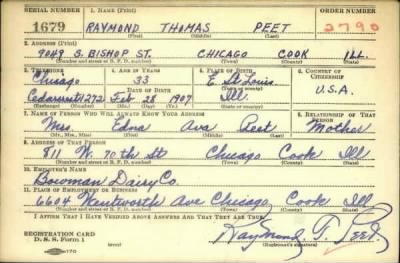 SERIAL NUMBER 1. NAME (Print) ORDER NUMBER
1679 RAYMOND THOMAS PEET 2790
(First) (Middle) (Last)
2. ADDRESS (Print)
9049 S. BISHOP ST. CHICAGO COOK ILL.
(Number and street or R. F. D. number) (Town) (County) (State)
3. TELEPHONE 4. AGE IN YEARS 6. PLACE OF BIRTH 6. COUNTRY OF CITIZENSHIP
Chicago 33 E. St. Louis
DATE OF BIRTH (Town or county)
Cedarcrest 1272 Feb 28 1907 Ill. U.S.A.
(Exchange) (Number) (Mo.) (Day) (Yr.) (State or country)
7. NAME OF PERSON WHO WILL ALWAYS KNOW YOUR ADDRESS 8. RELATIONSHIP OF THAT PERSON
Mrs Edna Ava Peet Mother
(Mr., Mrs., Miss) (First) (Middle) (Last)
9. ADDRESS OF THAT PERSON
811 W. 70th St Chicago Cook Ill
(Number and street or R. F. D. number) (Town) (County) (State)
10. EMPLOYER'S NAME
Bowman Dairy Co.
11. PLACE OF EMPLOYMENT OR BUSINESS
6604 Wentworth Ave Chicago Cook Ill
(Number and street or R. F. D. number) (Town) (County) (State)
I AFFIRM THAT I HAVE VERIFIED ABOVE ANSWERS AND THAT THEY ARE TRUE.
REGISTRATION CARD
D. S. S. Form 1 Raymond T. Peet
(Registrant's signature)